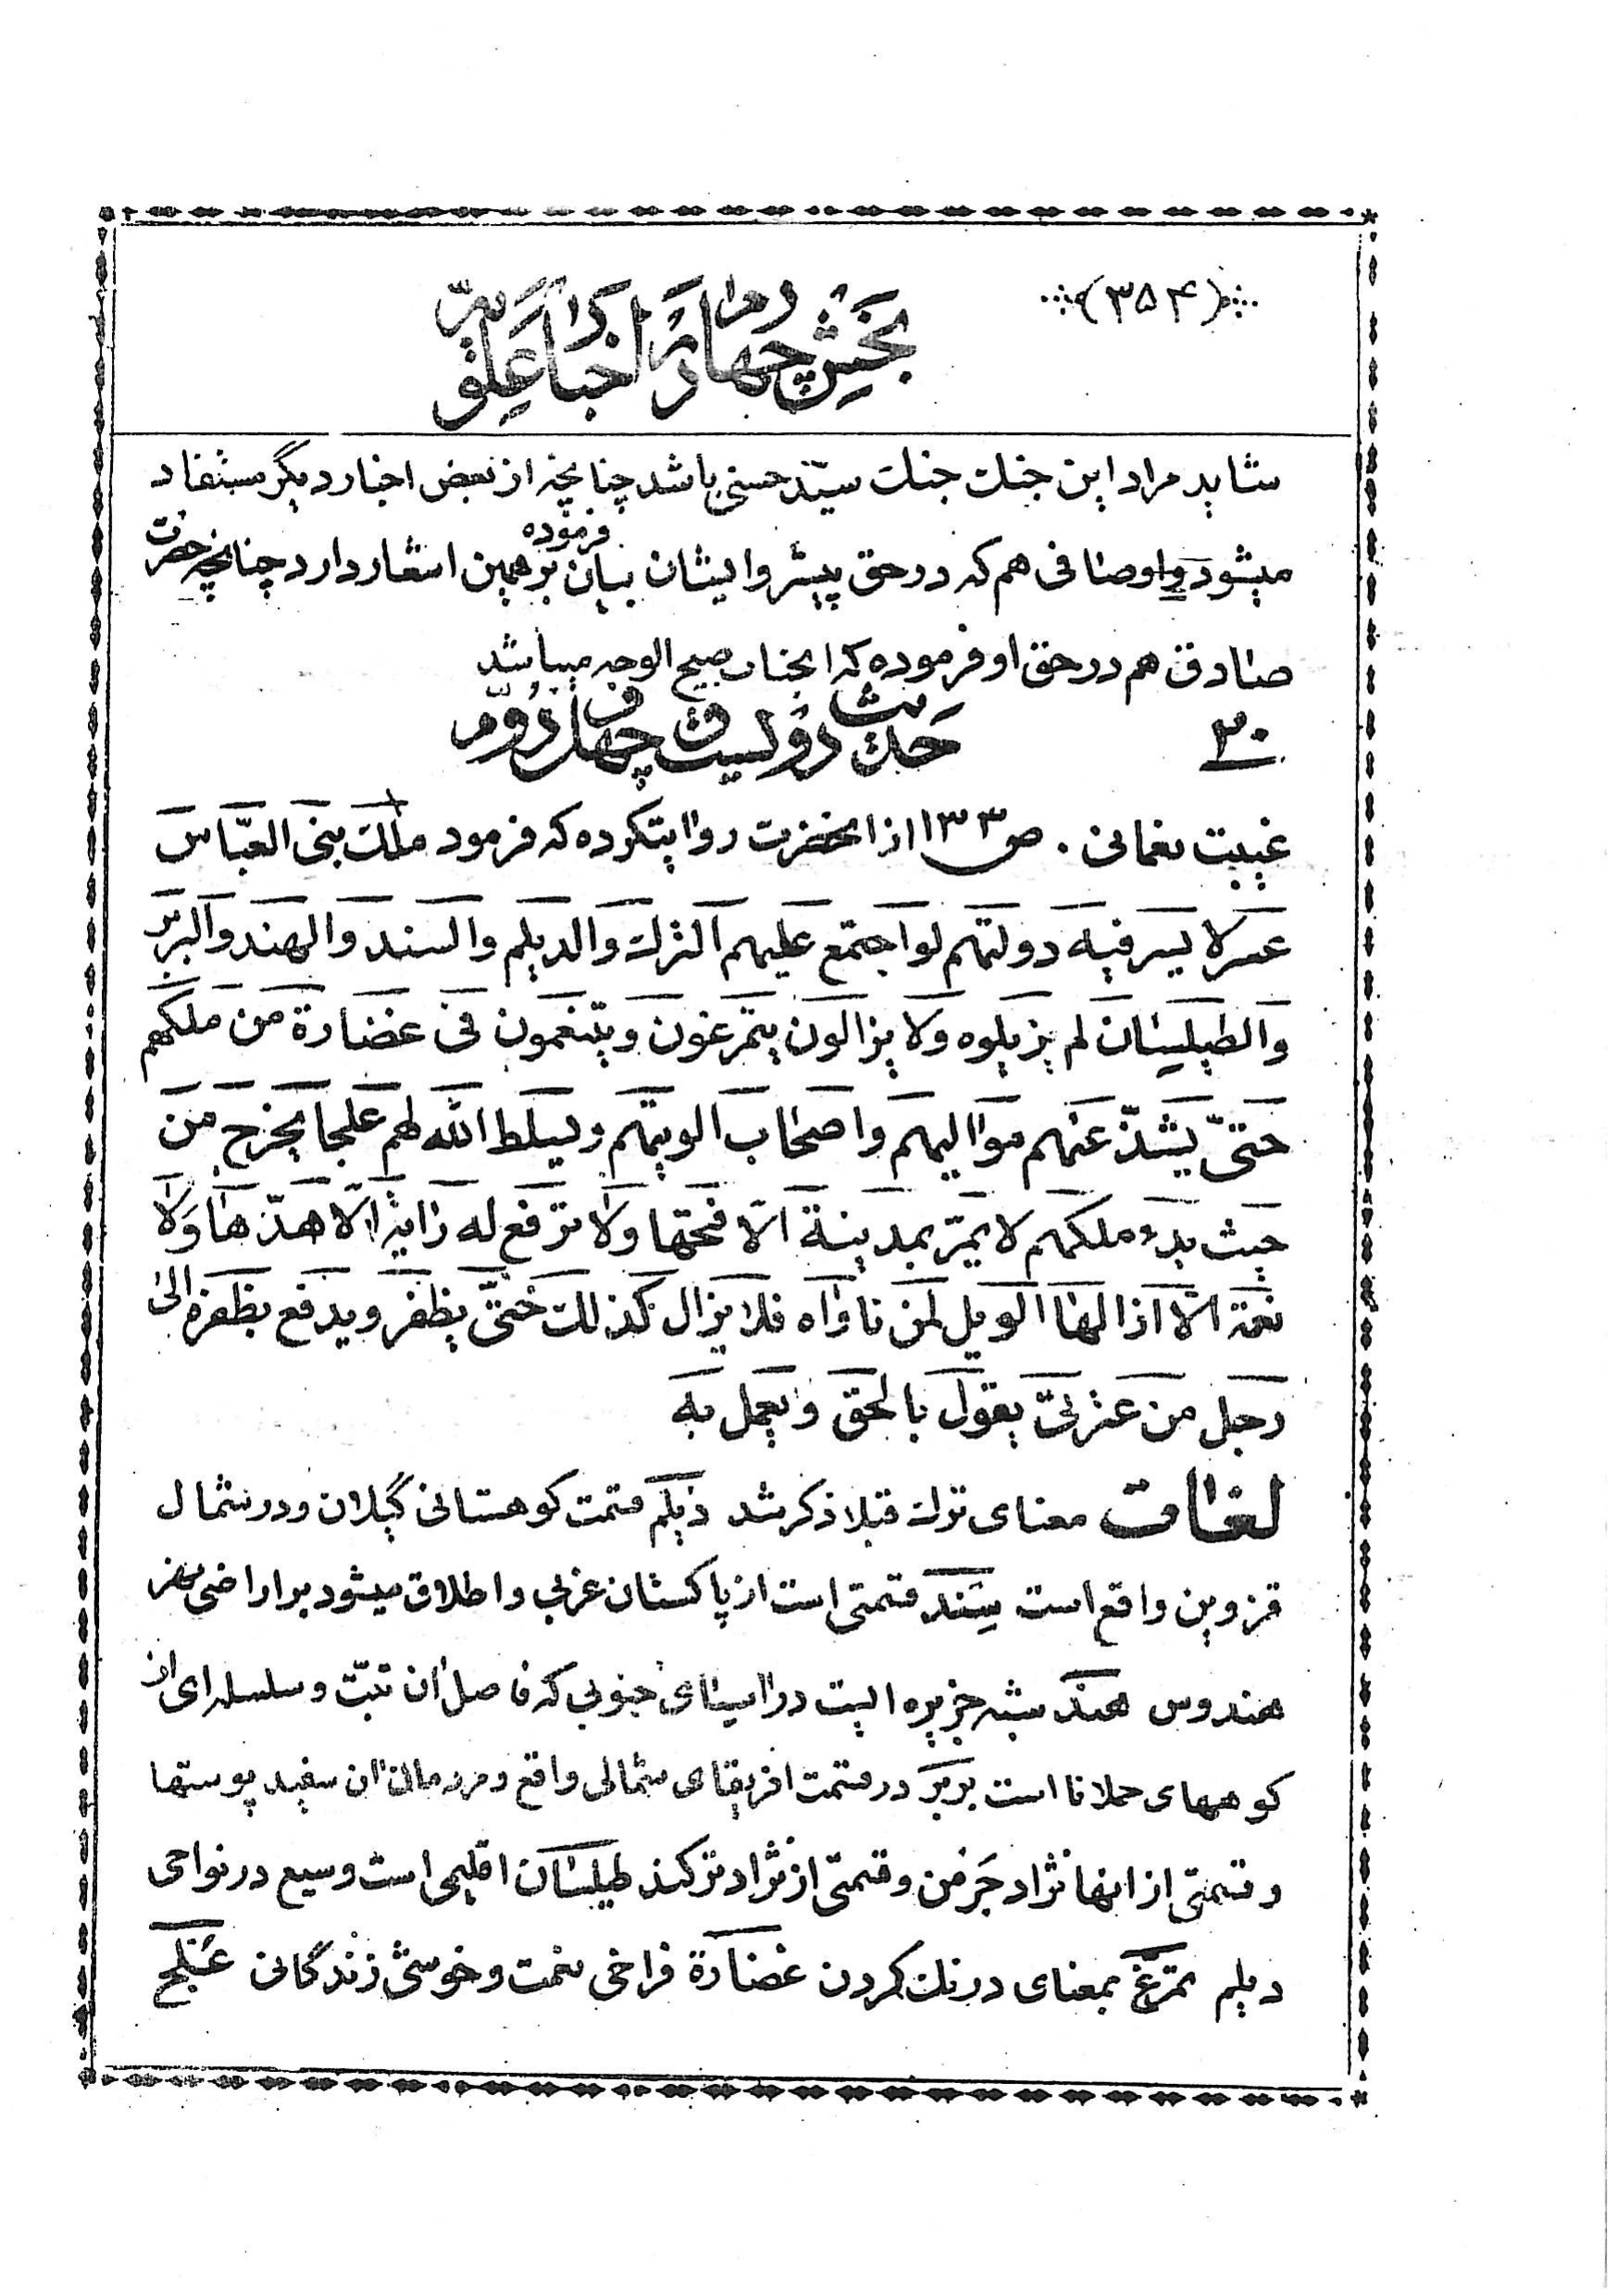 (۳۵۴)
بخش چهارم اخبار علوی
شاید مراد این جنك جنك سیّد حسنی باشد چنانچه از بعض اخبار دیگر مستفاد
میشود و اوصافی هم که در حق پیشروایشان بیان فرموده بر همین اشعار دارد چنانچه حضرت
صادق هم در حق او فرموده که انجناب صبیح الوجه میباشد
۳۰
حدیث دویست و چهل و دوّم
غیبت نعمانی . ص ۱۳۳ از انحضرت روایتکرده که فرمود ملك بنی العبّاس
عسر لا یسر فیه دولتهم لو اجتمع علیهم الترك والدیلم والسند والهند والبربر
والطیلسان لم یزیلوه ولا یزالون یتمرغون ویتنعمون فی غضارة من ملکهم
حتّی یشذّ عنهم موالیهم واصحاب الویتهم ویسلط الله لهم علجا یخرج من
حیث بدء ملکهم لا یمرّ بمدینة الّا فتحها ولا ترفع له رایة الّا هدّها ولا
نعمة الّا ازالها الویل لمن ناواه فلا یزال کذلك حتّی یظفر ویدفع بظفره الی
رجل من عترتی یقول بالحق ویعمل به
لغات معنای ترك قبلا ذکر شد دیلم قسمت کوهستانی گیلان و در شمال
قزوین واقع است سِند قسمتی است از پاکستان غربی و اطلاق میشود بر اراضی نهر
هندوس هند شبه جزیره ایست در اسیای جنوبی که فاصل ان تبّت و سلسله ای از
کوههای حملانا است بربر در قسمت افریقای شمالی واقع و مردمان ان سفید پوستها
و قسمتی از انها نژاد جَرمَن و قسمتی از نژاد ترکند طیلسان اقلیمی است وسیع در نواحی
دیلم تمرّغ بمعنای درنك کردن غضارة فراخی نعمت و خوشی زندگانی عَلج